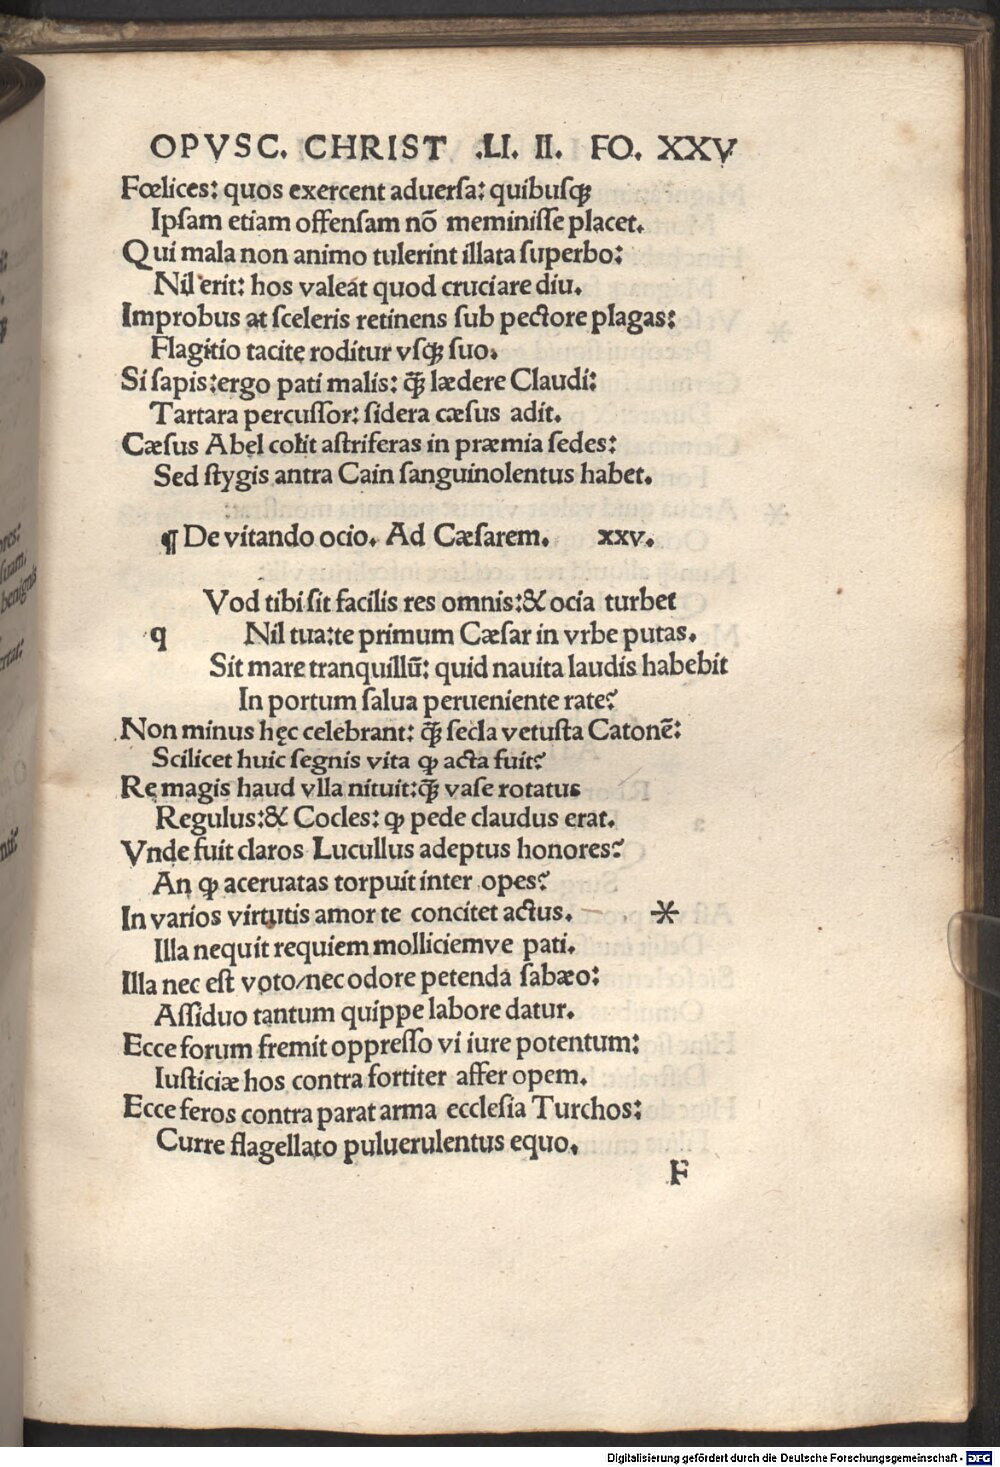 OPVSC. CHRIST .LI. II. FO. XXV
Fœlices: quos exercent aduersa: quibusqꝫ
Ipsam etiam offensam nō meminisse placet.
Qui mala non animo tulerint illata superbo:
Nil erit: hos valeāt quod cruciare diu.
Improbus at sceleris retinens sub pectore plagas:
Flagitio tacite roditur vsqꝫ suo.
Si sapis: ergo pati malis: q̄ꝫ lædere Claudi:
Tartara percussor: sidera cæsus adit.
Cæsus Abel colit astriferas in præmia sedes:
Sed stygis antra Cain sanguinolentus habet.
¶ De vitando ocio. Ad Cæsarem. xxv.
Vod tibi sit facilis res omnis: & ocia turbet
q Nil tua: te primum Cæsar in vrbe putas.
Sit mare tranquillū: quid nauita laudis habebit
In portum salua perueniente rate?
Non minus hęc celebrant: q̄ꝫ secla vetusta Catonē:
Scilicet huic segnis vita ꝙ acta fuit?
Rę magis haud vlla nituit: q̄ꝫ vase rotatus
Regulus: & Cocles: ꝙ pede claudus erat.
Vnde fuit claros Lucullus adeptus honores?
An ꝙ aceruatas torpuit inter opes?
In varios virtutis amor te concitet actus. *
Illa nequit requiem molliciemve pati.
Illa nec est voto/nec odore petenda sabæo:
Assiduo tantum quippe labore datur.
Ecce forum fremit oppresso vi iure potentum:
Iusticiæ hos contra fortiter affer opem.
Ecce feros contra parat arma ecclesia Turchos:
Curre flagellato puluerulentus equo.
F
Digitalisierung gefördert durch die Deutsche Forschungsgemeinschaft - DFG